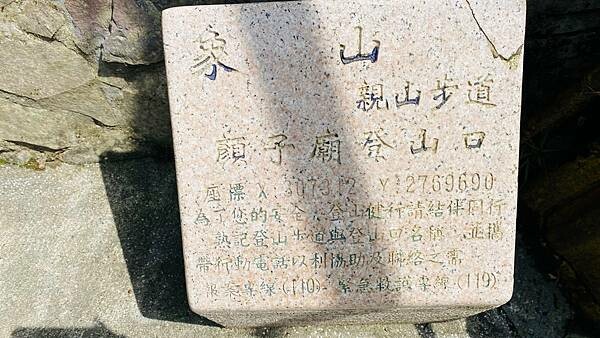 象山
親山步道
顏子廟登山口
座標 X:3073 2 Y:2769690
為了您的安全,登山健行請結伴同行
熟記登山步道與登山口名稱,並攜
帶行動電話以利協助及聯絡之需
報案專線(110) 緊急救護專線(119)